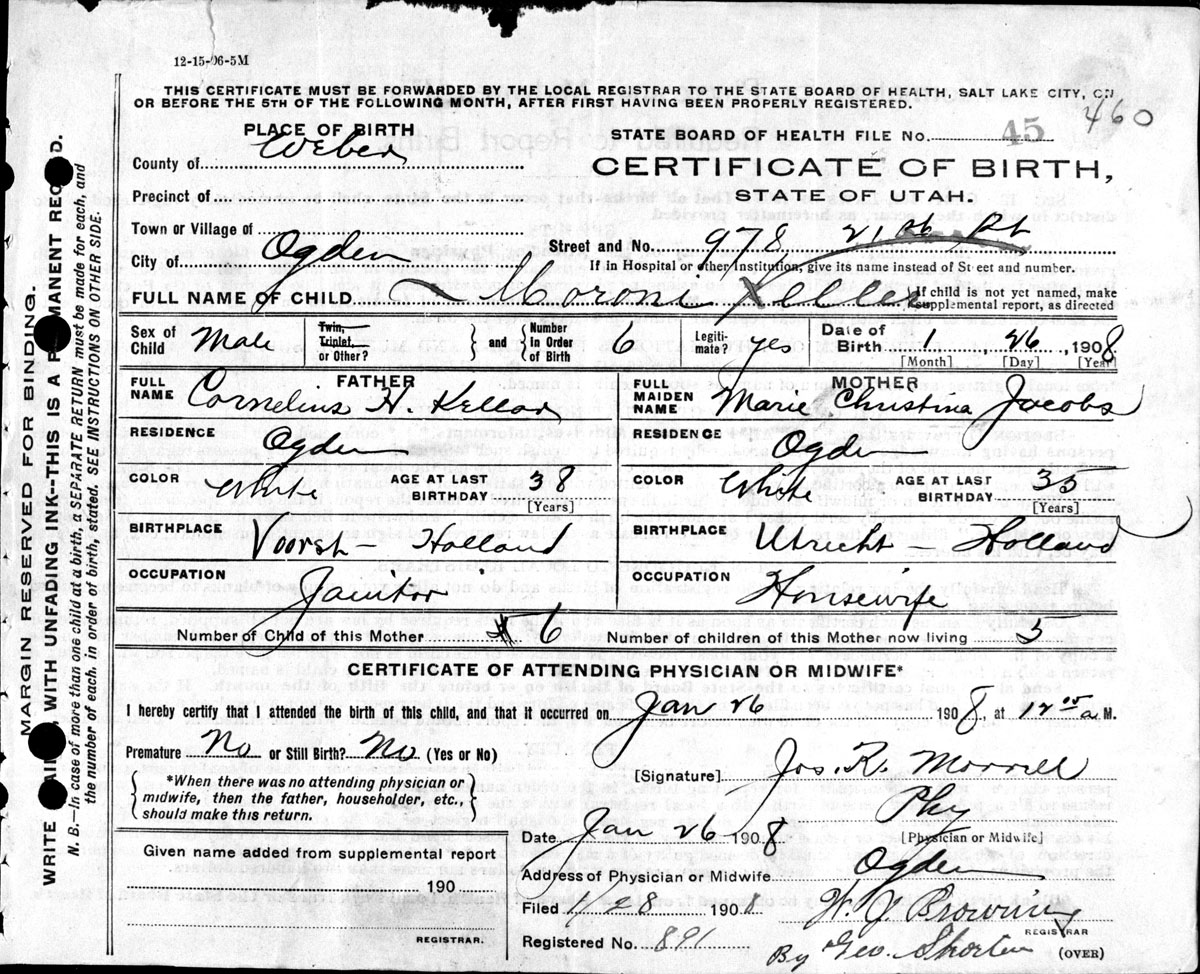 12-15-06-5M
THIS CERTIFICATE MUST BE FORWARDED BY THE LOCAL REGISTRAR TO THE STATE BOARD OF HEALTH, SALT LAKE CITY, ON
OR BEFORE THE 5TH OF THE FOLLOWING MONTH, AFTER FIRST HAVING BEEN PROPERLY REGISTERED.
460
PLACE OF BIRTH
STATE BOARD OF HEALTH FILE NO. 45
County of Weber
CERTIFICATE OF BIRTH,
Precinct of
STATE OF UTAH.
Town or Village of
Street and No. 978 21st St
City of Ogden
If in Hospital or other Institution, give its name instead of Street and number.
FULL NAME OF CHILD. Moroni Keller If child is not yet named, make supplemental report, as directed
Sex of Child Male Twin, Triplet, or Other? } and { Number In Order of Birth 6 Legiti-mate? yes Date of Birth 1, 26, 1908
[Month] [Day] [Year]
FULL NAME FATHER Cornelius H. Kellar
FULL MAIDEN NAME MOTHER Marie Christina Jacobs
RESIDENCE Ogden
RESIDENCE Ogden
COLOR White AGE AT LAST BIRTHDAY 38 [Years]
COLOR White AGE AT LAST BIRTHDAY 35 [Years]
BIRTHPLACE Voorst - Holland
BIRTHPLACE Utrecht Holland
OCCUPATION Janitor
OCCUPATION Housewife
Number of Child of this Mother 6 Number of children of this Mother now living 5
CERTIFICATE OF ATTENDING PHYSICIAN OR MIDWIFE*
I hereby certify that I attended the birth of this child, and that it occurred on Jan 26 1908, at 12 05 a M.
Premature No or Still Birth? No (Yes or No)
*When there was no attending physician or
midwife, then the father, householder, etc.,
should make this return.
[Signature] Jos. R. Morrell
Phy
[Physician or Midwife]
Date Jan 26 1908
Given name added from supplemental report
190
REGISTRAR.
Address of Physician or Midwife Ogden
Filed 1/28 1908 W. J. Browning
REGISTRAR
Registered No. 891 By Geo. Shorten (OVER)
MARGIN RESERVED FOR BINDING.
WRITE AIN, WITH UNFADING INK--THIS IS A P MANENT REC D.
N. B.—In case of more than one child at a birth, a SEPARATE RETURN must be made for each, and
the number of each, in order of birth, stated. SEE INSTRUCTIONS ON OTHER SIDE.